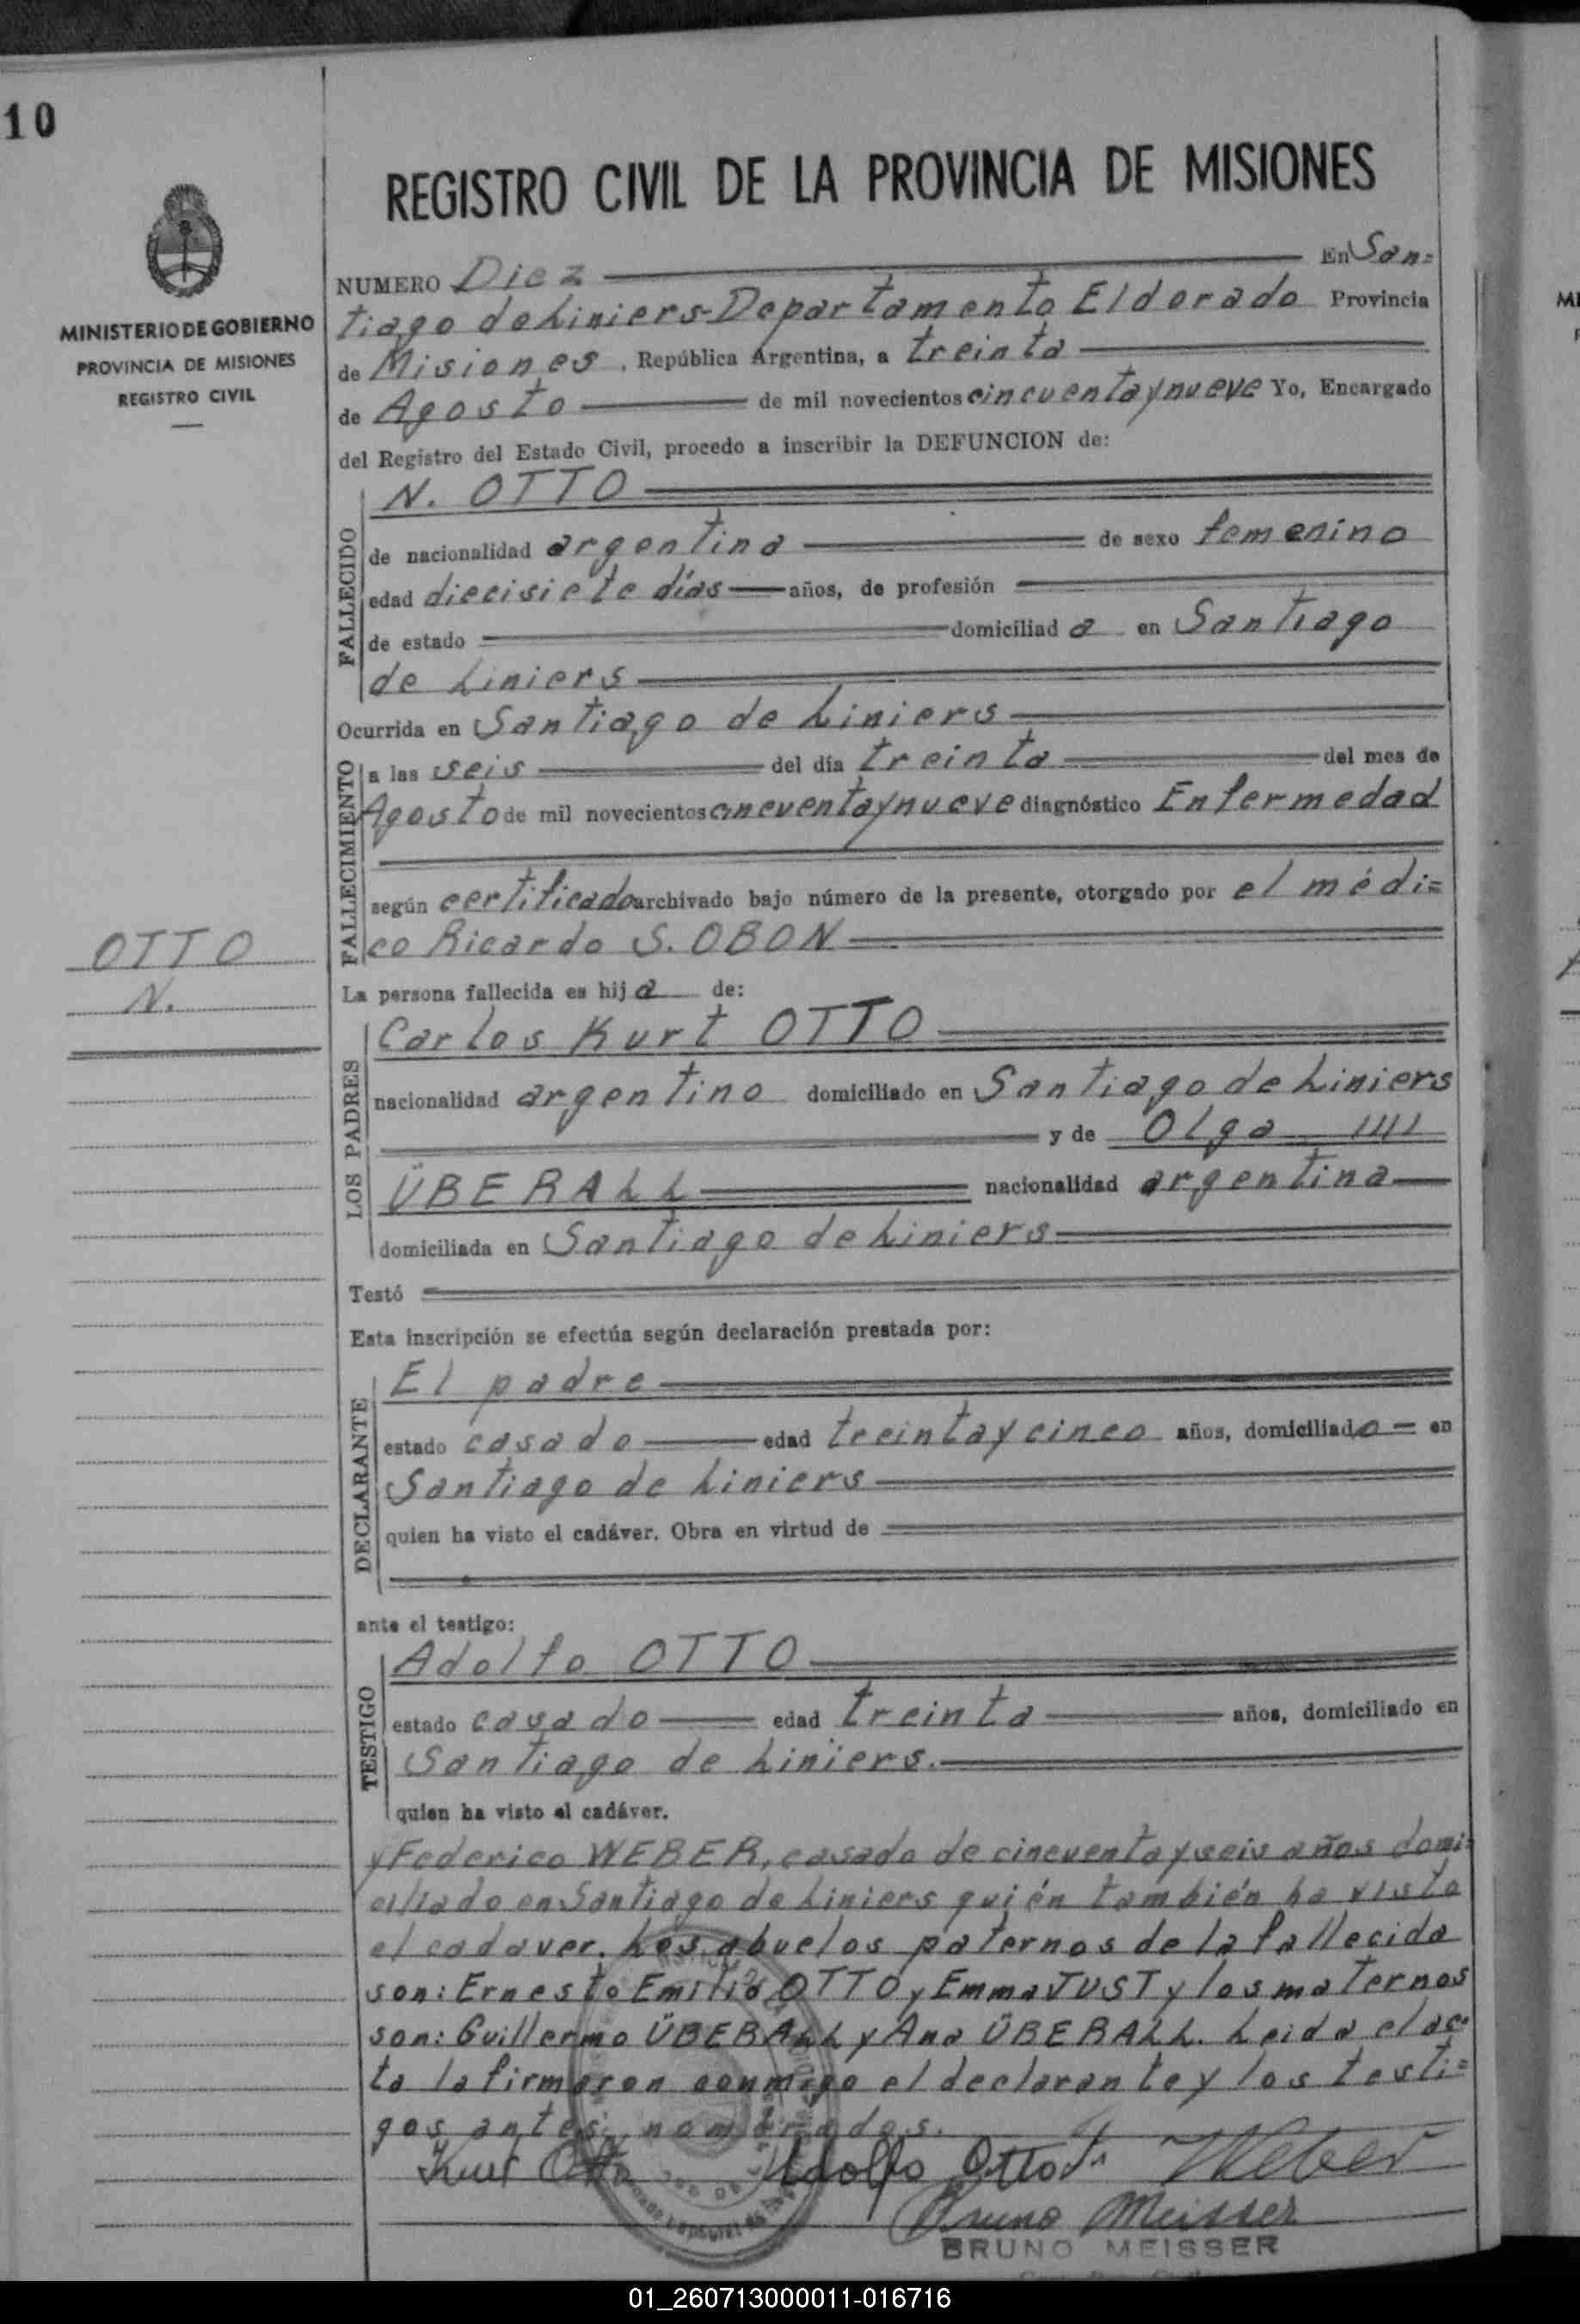 10
REGISTRO CIVIL DE LA PROVINCIA DE MISIONES
MINISTERIO DE GOBIERNO
PROVINCIA DE MISIONES
REGISTRO CIVIL
NUMERO Diez En San=
tiago de Liniers-Departamento Eldorado Provincia
de Misiones, República Argentina, a treinta
de Agosto de mil novecientos cincuentaynueve Yo, Encargado
del Registro del Estado Civil, procedo a inscribir la DEFUNCION de:
FALLECIDO
N. OTTO
de nacionalidad argentina de sexo femenino
edad diecisiete días años, de profesión
de estado domiciliad a en Santiago
de Liniers
Ocurrida en Santiago de Liniers
FALLECIMIENTO
a las seis del día treinta del mes de
Agosto de mil novecientos cincuentaynueve diagnóstico Enfermedad
según certificado archivado bajo número de la presente, otorgado por el médi=
co Ricardo S. OBON
OTTO
N.
La persona fallecida es hij a de:
LOS PADRES
Carlos Kurt OTTO
nacionalidad argentino domiciliado en Santiago de Liniers
y de Olga
ÜBERALL nacionalidad argentina
domiciliada en Santiago de Liniers
Testó
Esta inscripción se efectúa según declaración prestada por:
DECLARANTE
El padre
estado casado edad treintaycinco años, domiciliado en
Santiago de Liniers
quien ha visto el cadáver. Obra en virtud de
ante el testigo:
TESTIGO
Adolfo OTTO
estado casado edad treinta años, domiciliado en
Santiago de Liniers.
quien ha visto el cadáver.
y Federico WEBER, casado de cincuentayseis años domi=
ciliado en Santiago de Liniers quién también ha visto
el cadaver. Los abuelos paternos de la fallecida
son: Ernesto Emilio OTTO y Emma JUST y los maternos
son: Guillermo ÜBERALL y Ana ÜBERALL. Leida el ac=
ta la firmaron conmigo el declarante y los testi=
gos antes nombrados.
Kurt Otto Adolfo Otto Weber
Bruno Meisser
BRUNO MEISSER
01_260713000011-016716